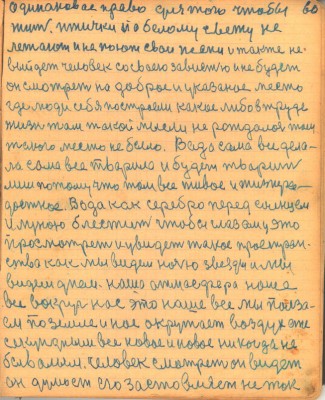 одинаковое право для того чтобы 60
жит. птички и по белому свету не
летают и не поют свои песни и также не
выйдет человек со своего завистю и не будет
он смотрет на доброе и указаное место
где люди себя построем какое либо в труде
жизн там такой мысли не рождалос там
такого место не было. Вода сама все дела-
ла сама все творила и будет творит
мы потому что там все живое и
достное. Вода как серебро перед солнцем
и луною блестит чтобы глазами это
просмотрет и увидет такое простран-
ства как мы видем ночю звезды и мы
видем днем. наша атмасфера наше
все вокруг нас это наше все мы полза-
ем по земле и нас окружает воздух
все новое и новое никогда не
бывалым. человек смотрет он видет
он думает его заставляет не так